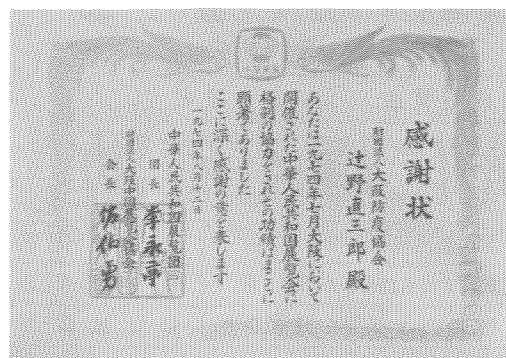 感謝状
財団法人大阪防疫協会
辻野直三郎殿
あなたは一九七四年七月大阪において
開催された中華人民共和国展覧会に
格別の協力をされその功績はまことに
顕著でありました
ここに深く感謝の意を表します
一九七四年八月十二日
中華人民共和国展覧団
団長 李永亭
大阪中国展覧会
会長 佐伯勇